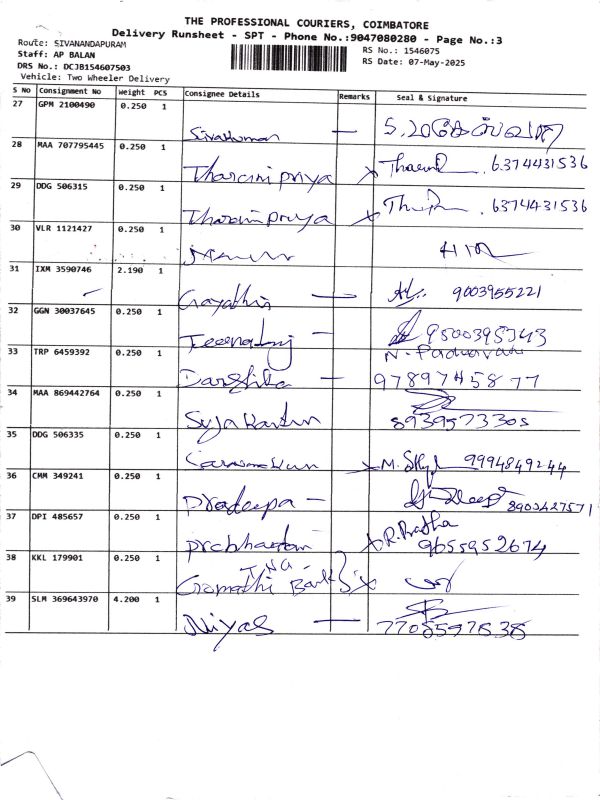 THE PROFESSIONAL COURIERS, COIMBATORE
Delivery Runsheet - SPT - Phone No.:9047080280 - Page No.:3
Route: SIVANANDAPURAM
Staff: AP BALAN
DRS No.: DCJB154607503
Vehicle: Two Wheeler Delivery
RS No.: 1546075
RS Date: 07-May-2025
S No Consignment No Weight PCS Consignee Details Remarks Seal & Signature
27 GPM 2100490 0.250 1 Sivakumar —
28 MAA 707795445 0.250 1 Tharani priya x 6374431536
29 DDG 506315 0.250 1 Tharani priya x 6374431536
30 VLR 1121427 0.250 1
31 IXM 3590746 2.190 1 Gayathri — 9003955221
32 GGN 30037645 0.250 1 —
33 TRP 6459392 0.250 1 — 9789745877
34 MAA 869442764 0.250 1 8939573305
35 DDG 506335 0.250 1 x 9994849244
36 CMM 349241 0.250 1 Pradeepa — 8903427571
37 DPI 485657 0.250 1 x R. Pratha 9655952674
38 KKL 179901 0.250 1 Bank x
39 SLM 369643970 4.200 1 Niyas —